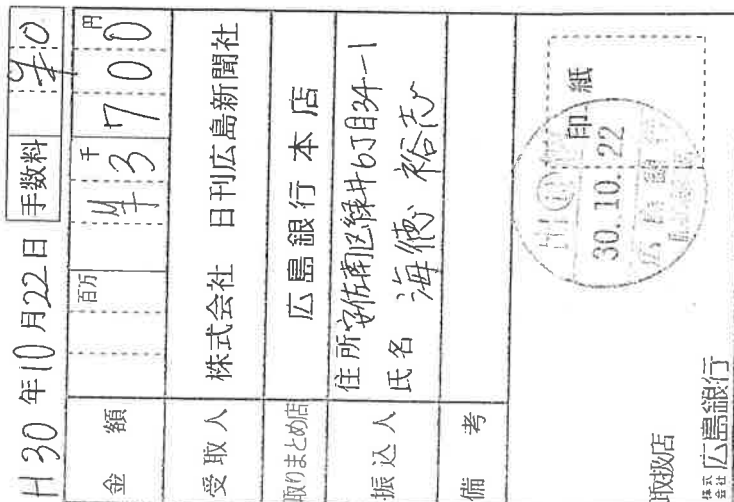 H30年10月22日 手数料 ¥0
金額 百万 千 円 ¥3700
受取人 株式会社 日刊広島新聞社
取りまとめ店 広島銀行本店
振込人 住所 安佐南区緑井6丁目34-1
氏名 海徳 裕志
備考
印紙
30.10.22
取扱店
株式会社 広島銀行